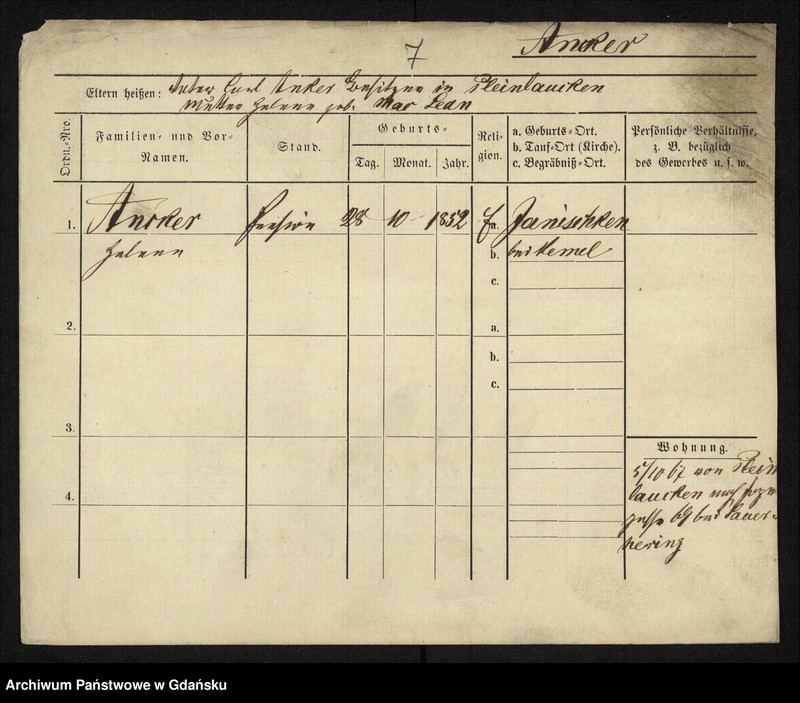 7
Ancker
Eltern heißen: Vater Carl Anker Besitzer in Pleinlaucken
Mutter Helene geb.
Ordn.-Nro.
Familien- und Vor-
Namen.
Stand.
Geburts-
Tag. Monat. Jahr.
Reli-
gion.
a. Geburts-Ort.
b. Tauf-Ort (Kirche).
c. Begräbniß-Ort.
Persönliche Verhältnisse,
z. B. bezüglich
des Gewerbes u. s. w.
1. Ancker 28 10 1852 a. Janischken
Helene b. bei Memel
c.
2. a.
b.
c.
3.
4.
Wohnung.
5/10 67 von Plein
laucken nach
69 bei Sauer-
hering
Archiwum Państwowe w Gdańsku